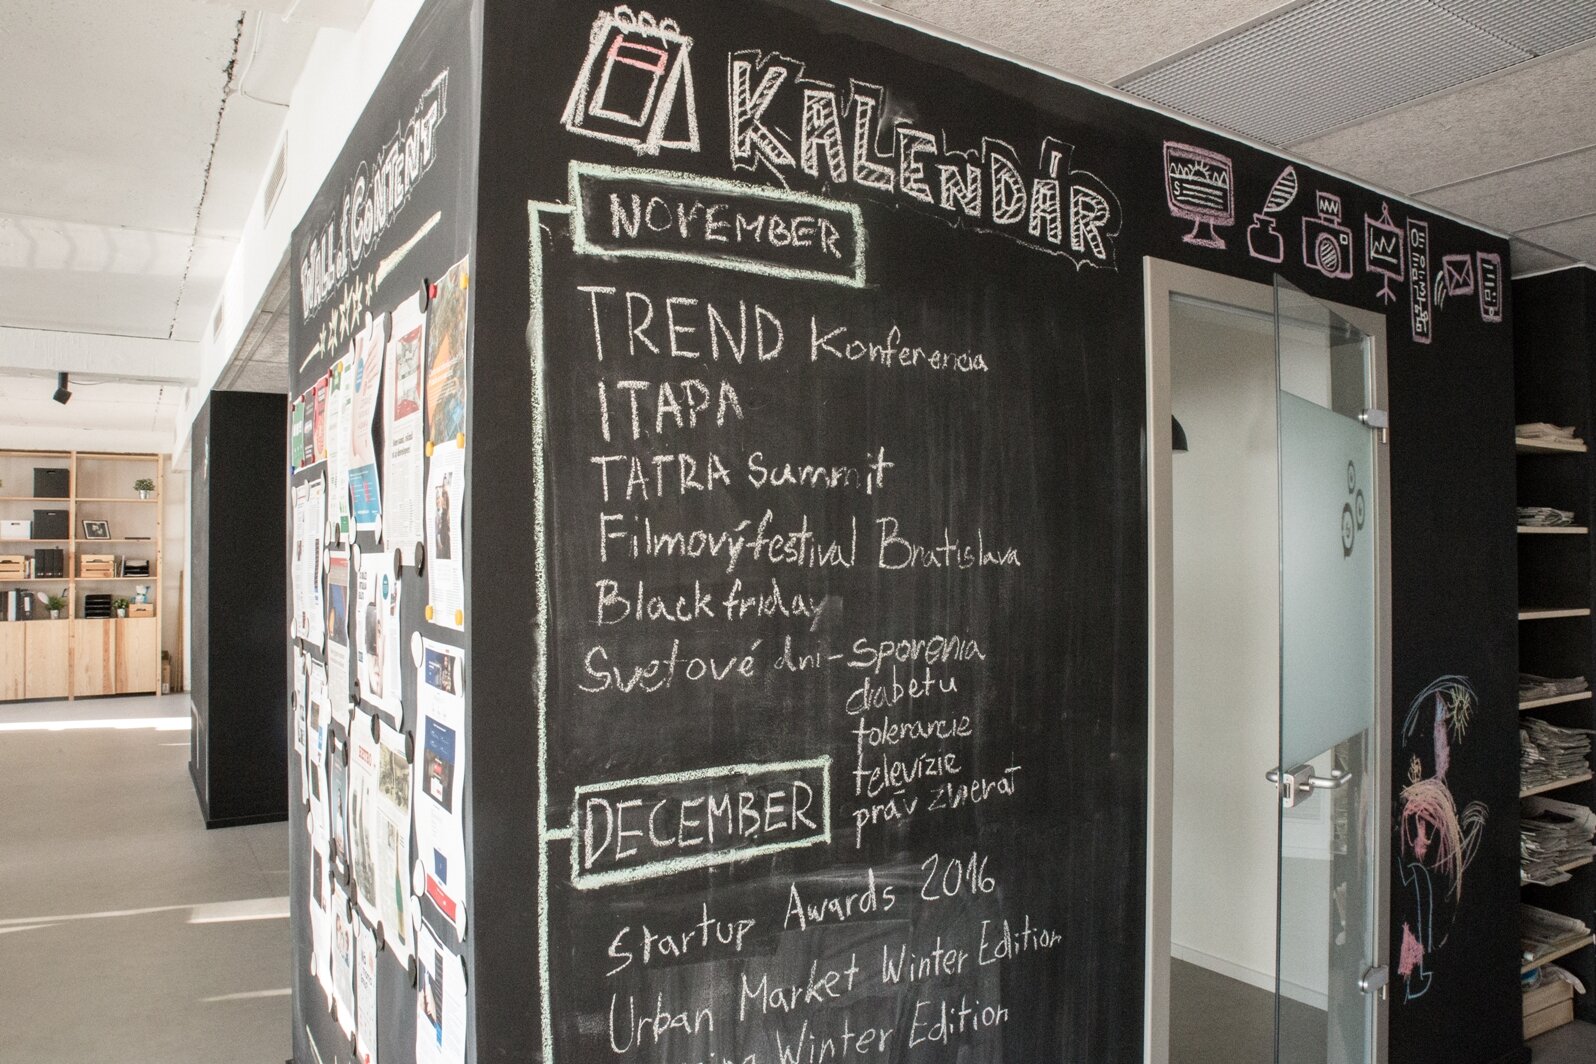 WALL of CONTENT
KALENDÁR
NOVEMBER
TREND Konferencia
ITAPA
TATRA Summit
Filmový festival Bratislava
Black friday
Svetové dni - sporenia
diabetu
tolerancie
televízie
práv zvierat
DECEMBER
Startup Awards 2016
Urban Market Winter Edition
Winter Edition